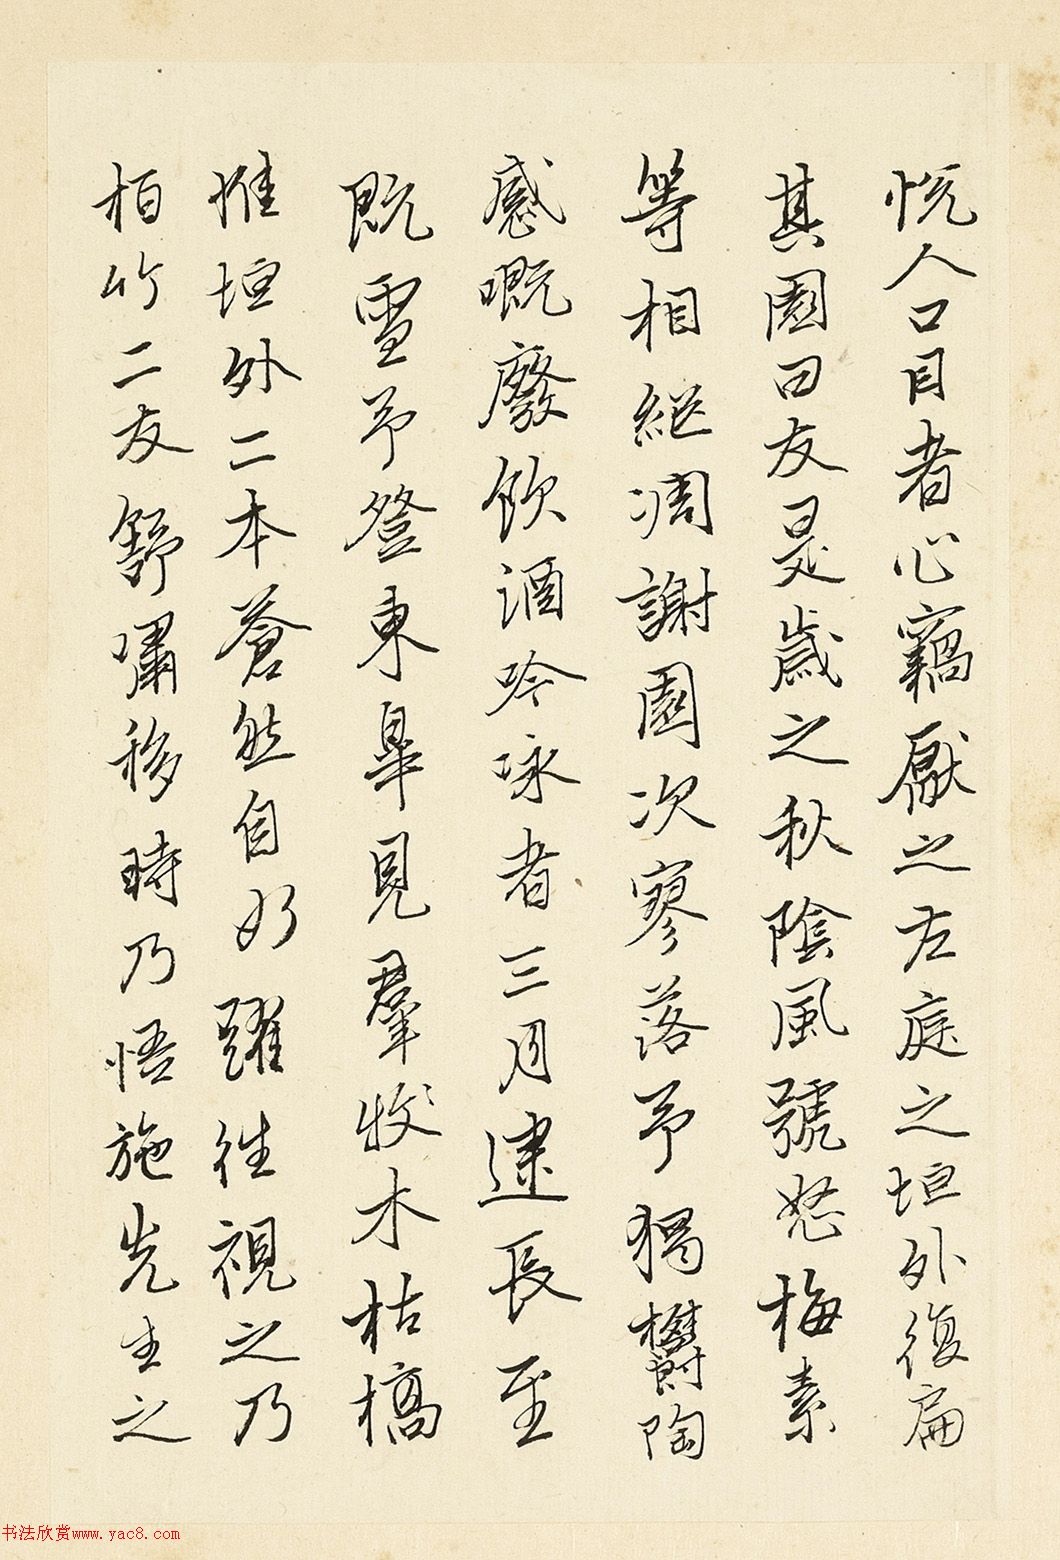 悦人口目者心竊厭之左庭之垣外復扁
其園曰友是歲之秋陰風號怒梅素
等相繼凋謝園次寥落予獨欝陶
感嘅廢飲酒吟咏者三月逮長至
既雪予登東皐見羣牧木枯槁
惟垣外二本蒼然自如躍往視之乃
柏竹二友舒嘯移時乃悟施先生之
书法欣赏www.yac8.com